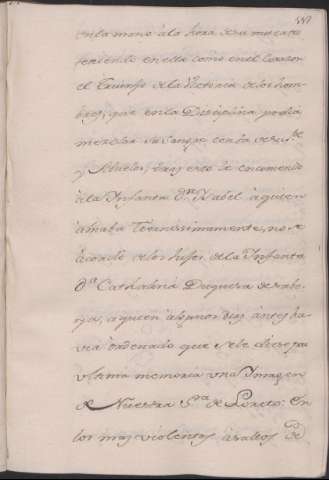 en la mano à la hora de su muerte
teniendo en ella como en el Corazon
el triunfo de la Victoria de los hom
bres, que en la Disciplina podia
mezclar su Sangre con la de su Pe
y Abuelos, tras esto le encomendò
à la Infanta Da Ysabel à quien
amaba Ternissimamente, no se
acordò de los hijos de la Infanta
Da Cathalina Duquesa de Sabo
ya, a quien algunos dias antes ha
via ordenado que se le diese por
ultima memoria una Imagen
de Nuestra Sra de Loreto: En
los mas violentos asaltos de